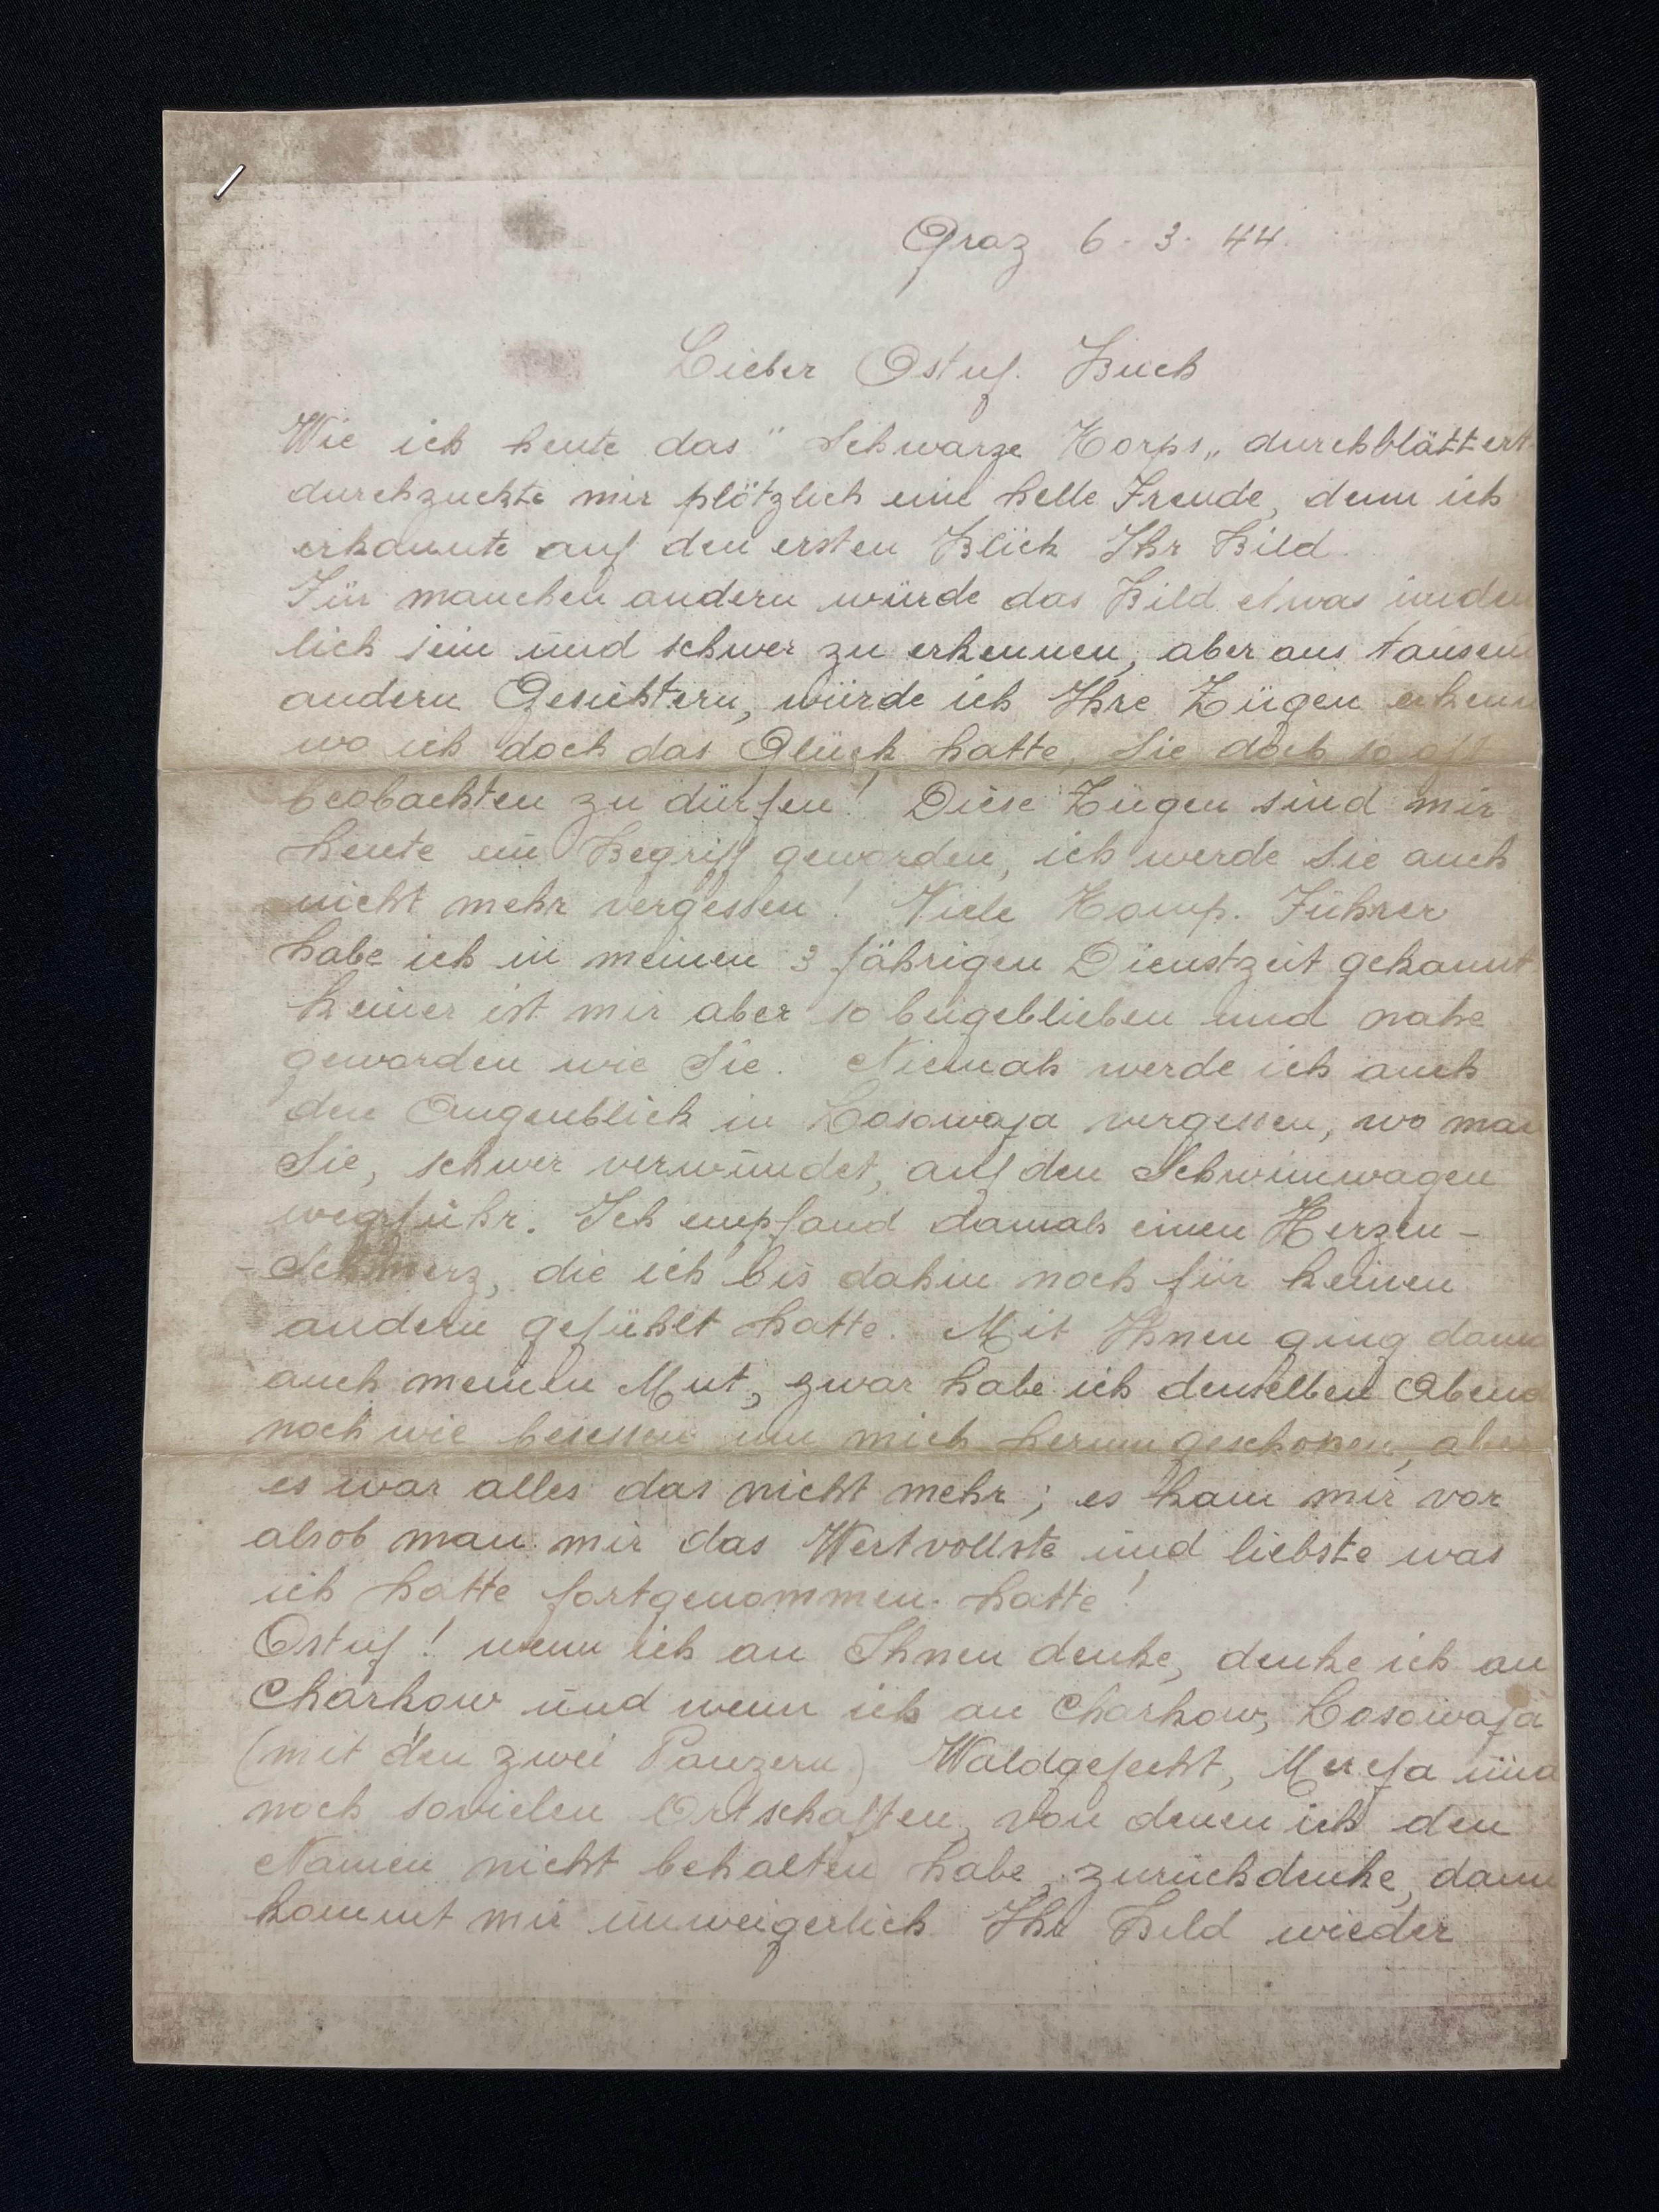 Graz 6. 3. 44.
Lieber Ostuf. Buch
Wie ich heute das "Schwarze Korps„ durchblättert
durchzuckte mir plötzlich eine helle Freude, denn ich
erkannte auf den ersten Blick Ihr Bild.
Für manchen andern würde das Bild etwas undeu
lich sein und schwer zu erkennen, aber aus tausen
andern Gesichtern, würde ich Ihre Zügen erkenn
wo ich doch das Glück hatte, Sie doch so oft
beobachten zu dürfen! Diese Zügen sind mir
heute ein Begriff geworden, ich werde Sie auch
nicht mehr vergessen! Viele Komp. Führer
habe ich in meinen 3 jährigen Dienstzeit gekannt
keiner ist mir aber so beigeblieben und nahe
geworden wie Sie. Niemals werde ich auch
den Augenblick in Losowaja vergessen, wo man
Sie, schwer verwundet, auf den Schwimwagen
wegführ. Ich empfand damals einen Herzen-
-Schmerz, die ich bis dahin noch für keinen
andern gefühlt hatte. Mit Ihnen ging dann
auch meinen Mut, zwar habe ich denselben Abend
noch wie besessen um mich herumgeschossen, aber
es war alles das nicht mehr; es kam mir vor
alsob man mir das Wertvollste und liebste was
ich hatte fortgenommen hatte!
Ostuf! wenn ich an Ihnen denke, denke ich an
Charkow und wenn ich an Charkow, Losowaja
(mit den zwei Panzern) Waldgefecht, Merefa und
noch sovielen Ortschaften, von denen ich den
Namen nicht behalten habe, zurückdenke, dann
kommt mir unweigerlich Ihr Bild wieder